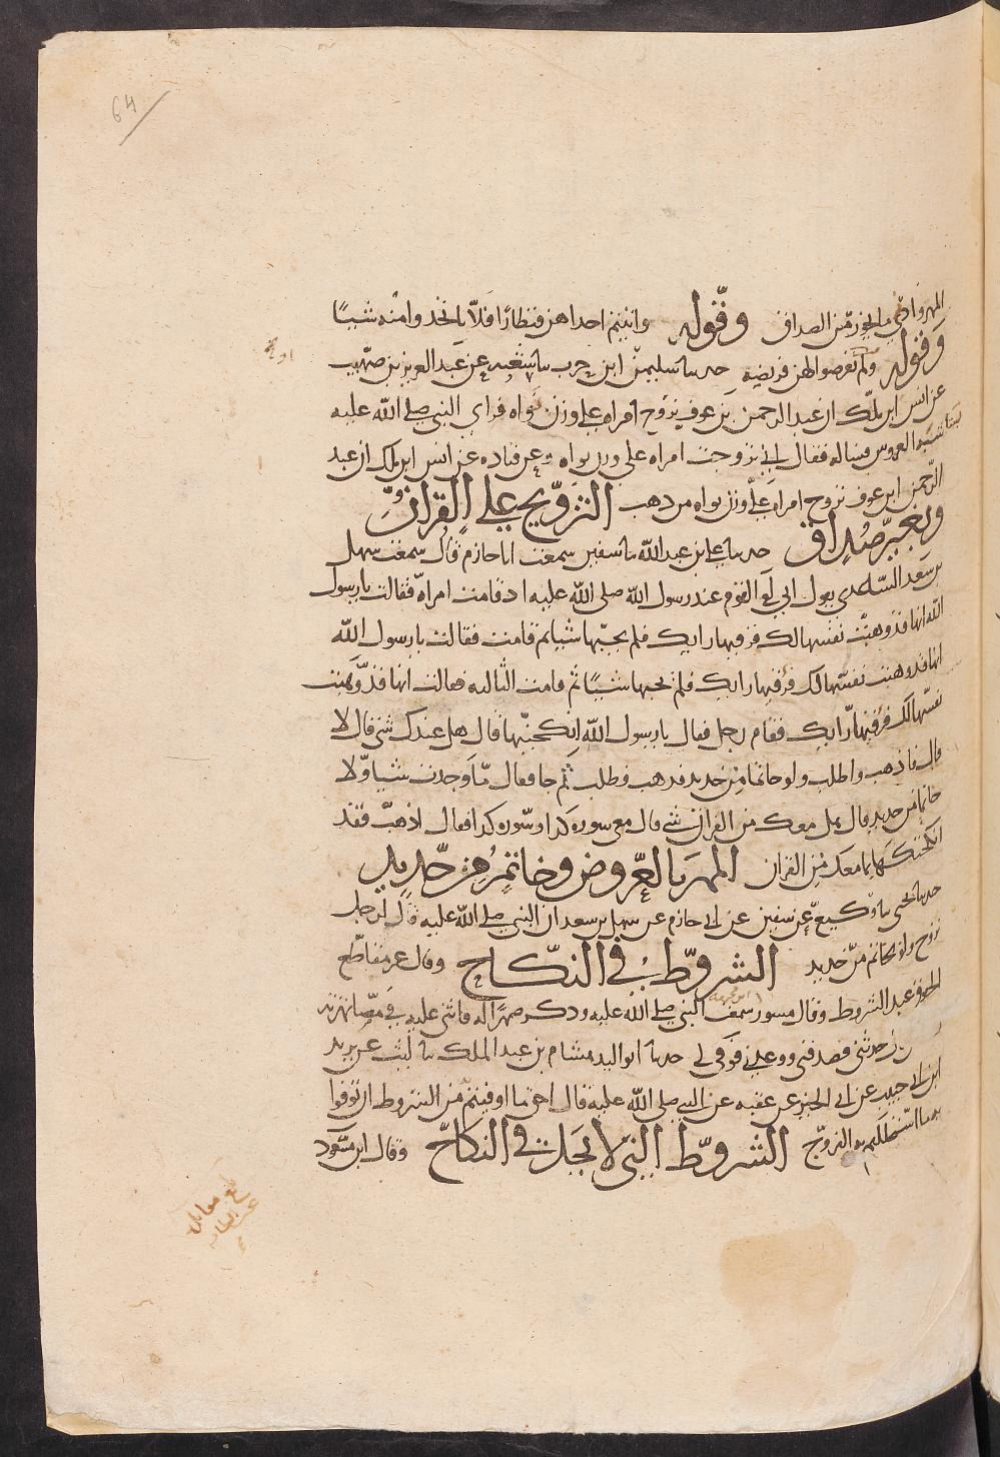 64
المهر وادنى ما يجوز من الصداق وقوله واتيتم احداهن قنطارا فلا تاخذوا منه شيئا
وقوله ولم تفرضوا لهن فريضة حدثنا سليمن ابن حرب نا شعبه عن عبد العزيز بن صهيب
عن انس ابن ملك ان عبد الرحمن بن عوف تزوج امراه على وزن نواه فراى النبي صلى الله عليه
شبه العروس فساله فقال اني تزوجت امراه على وزن نواه وعن قتاده عن انس ابن ملك ان عبد
الرحمن ابن عوف تزوج امراه على وزن نواه من ذهب التزويج على القران
وبغير صداق حدثنا علي بن عبد الله نا سفين سمعت ابا حازم قال سمعت سهل
بن سعد الساعدي يقول اني لفي القوم عند رسول الله صلى الله عليه اذ قامت امراة فقالت يا رسول
الله انها قد وهبت نفسها لك فر فيها رايك فلم يجبها شيا ثم قامت فقالت يا رسول الله
انها قد وهبت نفسها لك فر فيها رايك فلم يجبها شيئا ثم قامت الثالثه فقالت انها قد وهبت
نفسها لك فر فيها رايك فقام رجل فقال يا رسول الله انكحنيها قال هل عندك شئ قال لا
قال فاذهب واطلب ولو خاتما من حديد فذهب فطلب ثم جا فقال ما وجدت شيا ولا
خاتما من حديد قال هل معك من القران شي قال معي سوره كذا وسوره كذا فقال اذهب فقد
انكحتكها بما معك من القران المهر بالعروض وخاتم من حديد
حدثنا يحيى نا وكيع عن سفين عن ابي حازم عن سهل بن سعد ان النبي صلى الله عليه قال لرجل
تزوج ولو بخاتم من حديد الشروط في النكاح وقال عمر مقاطع
الحقوق عند الشروط وقال مسور سمعت النبي صلى الله عليه وذكر صهرا له فاثنى عليه في مصاهرته
حدثني فصدقني ووعدني فوفى لي حدثنا ابو الوليد هشام بن عبد الملك نا ليث عن يزيد
ابن ابي حبيب عن ابي الخير عن عقبه عن النبي صلى الله عليه قال احق ما اوفيتم من الشروط ان توفوا
به ما استحللتم به الفروج الشروط التي لا تحل في النكاح وقال ابن مسعود